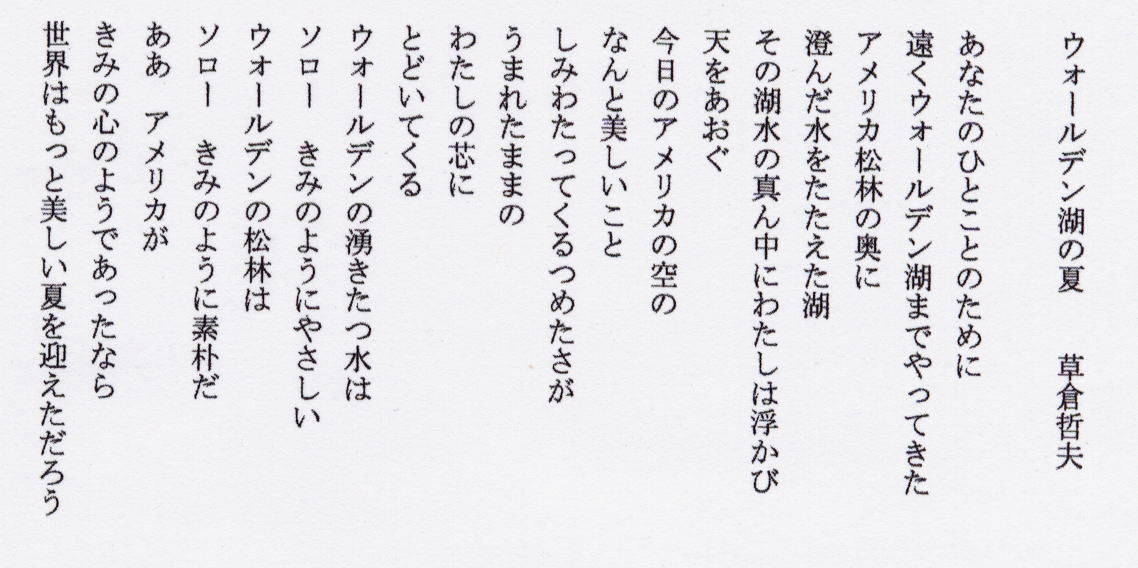 ウォールデン湖の夏　　草倉哲夫
あなたのひとことのために
遠くウォールデン湖までやってきた
アメリカ松林の奥に
澄んだ水をたたえた湖
その湖水の真ん中にわたしは浮かび
天をあおぐ
今日のアメリカの空の
なんと美しいこと
しみわたってくるつめたさが
うまれたままの
わたしの芯に
とどいてくる
ウォールデンの湧きたつ水は
ソロー　きみのようにやさしい
ウォールデンの松林は
ソロー　きみのように素朴だ
ああ　アメリカが
きみの心のようであったなら
世界はもっと美しい夏を迎えただろう